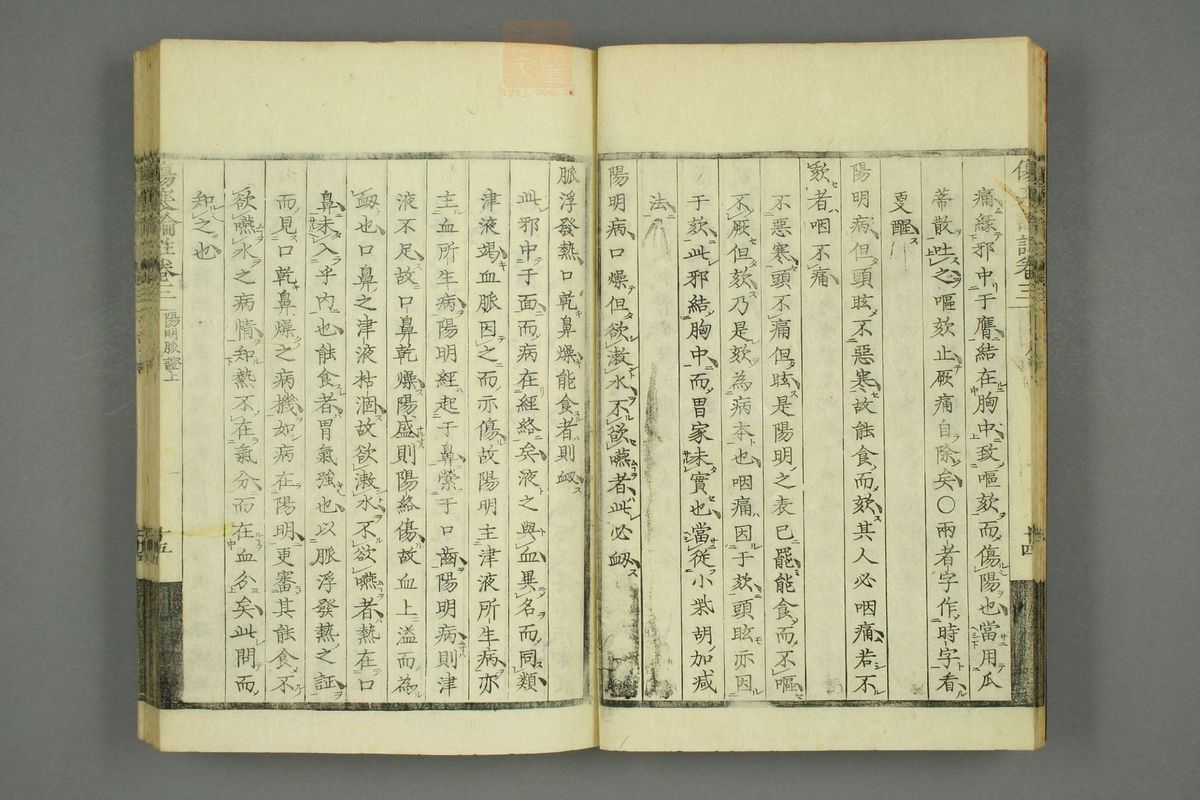 痛緣邪中于膺結在胸中致嘔欬而傷陽也當用瓜
蒂散吐之嘔欬止厥痛自除矣〇兩者字作時字看
更醒
陽明病但頭眩不惡寒故能食而欬其人必咽痛若不
欬者咽不痛
不惡寒頭不痛但眩是陽明之表已罷能食而不嘔
不厥但欬乃是欬為病本也咽痛因于欬頭眩亦因
于欬此邪結胸中而胃家未實也當從小柴胡加減
法
陽明病口燥但欲漱水不欲嚥者此必衂
脈浮發熱口乾鼻燥能食者則衂
此邪中于面而病在經絡矣液之與血異名而同類
津液竭血脈因之而亦傷故陽明主津液所生病亦
主血所生病陽明經起于鼻縈于口齒陽明病則津
液不足故口鼻乾燥陽盛則陽絡傷故血上溢而為
衂也口鼻之津液枯涸故欲漱水不欲嚥者熱在口
鼻未入乎內也能食者胃氣強也以脈浮發熱之証
而見口乾鼻燥之病機如病在陽明更審其能食不
欲嚥水之病情知熱不在氣分而在血分矣此問而
知之也
傷寒論註卷三 十四
傷寒論註卷三 陽明脈證上 十五